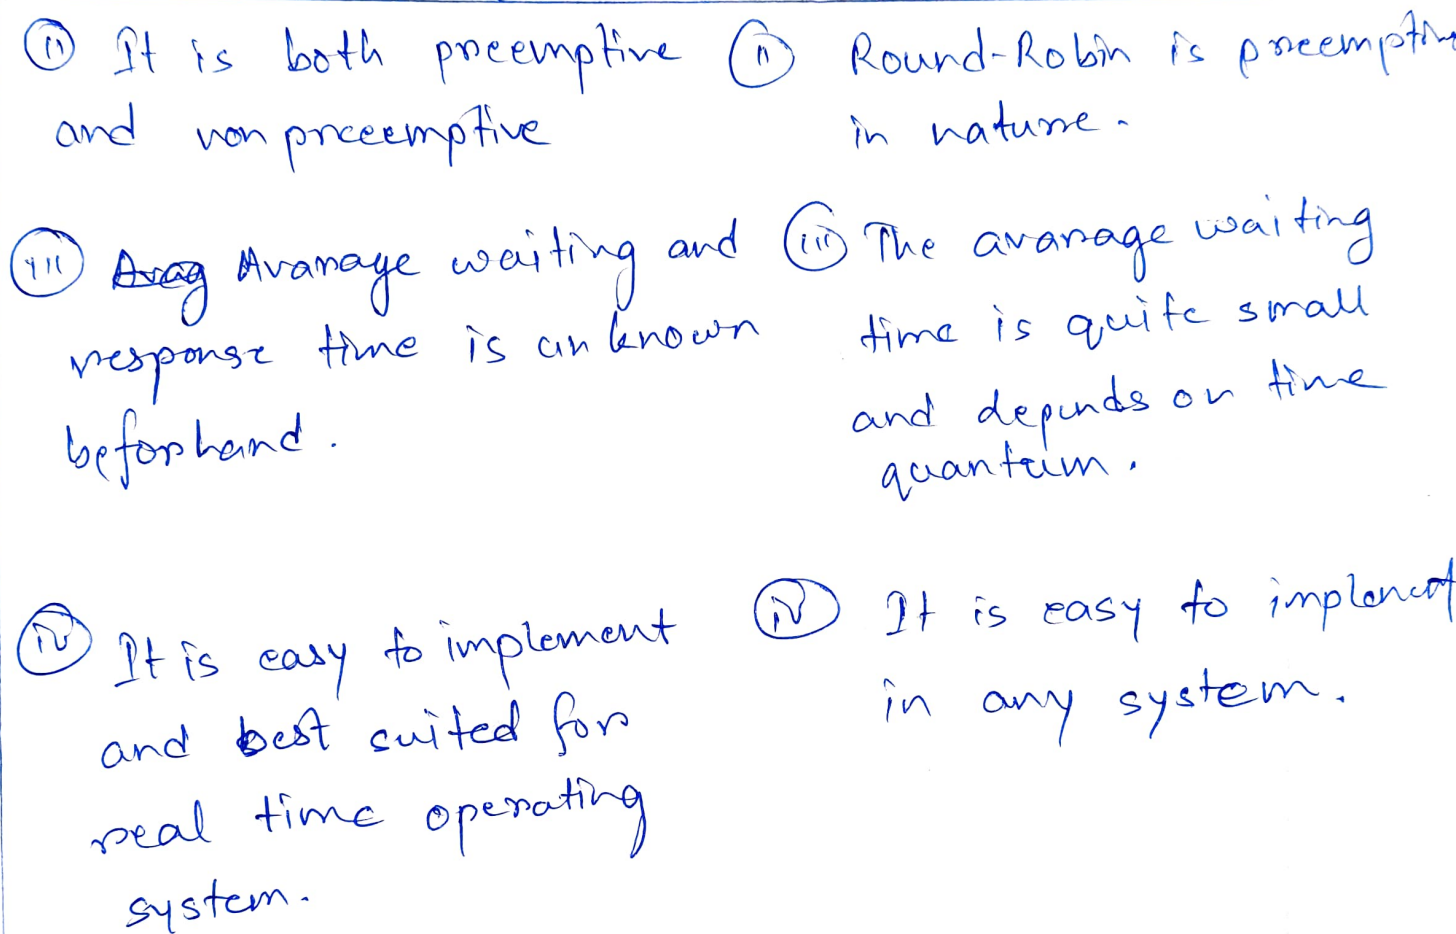 (ii) It is both preemptive
and non preemptive
(iii) Avarage waiting and
response time is unknown
beforhand.
(iv) It is easy to implement
and best suited for
real time operating
system.
(ii) Round-Robin is preemptive
in nature.
(iii) The avarage waiting
time is quite small
and depends on time
quantum.
(iv) It is easy to implement
in any system.